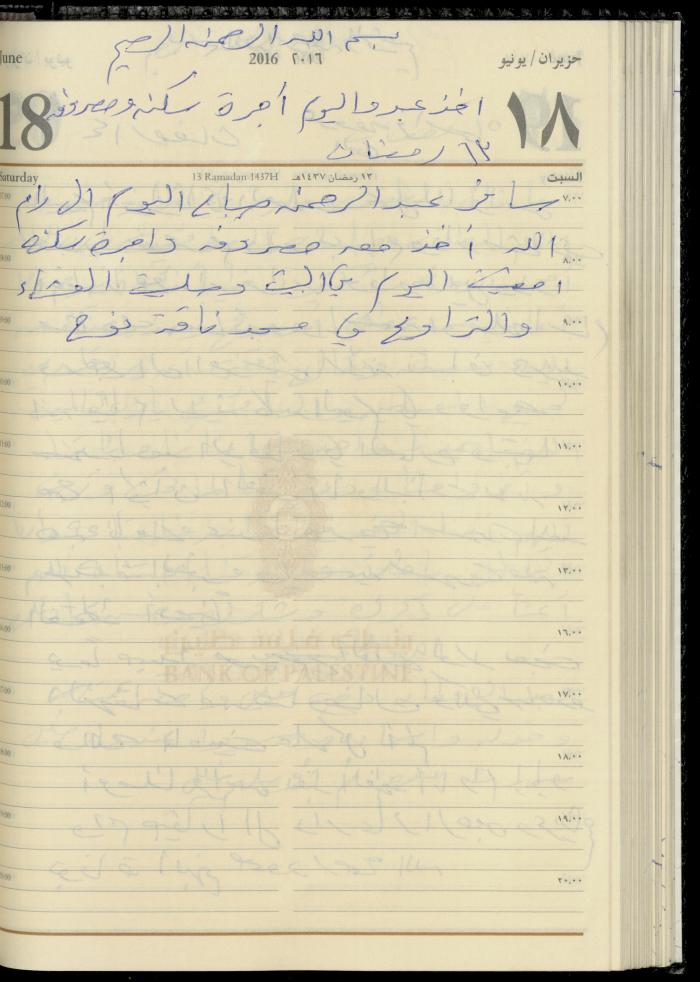 بسم الله الرحمن الرحيم
June 2016 ٢٠١٦ حزيران / يونيو
18 ١٨
اخذ عبد واليوم أجرة سكنه ومصروفه
١٣ رمضان
Saturday 13 Ramadan 1437H ١٣ رمضان ١٤٣٧هـ السبت
سافر عبد الرحمن صباح اليوم الى رام ٧,٠٠
الله أخذ معه مصروفه واجرة سكنه
٨,٠٠
امضيت اليوم في البيت وصليت العشاء
والتراويح في مسجد ناقة نوح ٩,٠٠
١٠,٠٠
١١,٠٠
١٢,٠٠
١٣,٠٠
١٦,٠٠
BANK OF PALESTINE
١٧,٠٠
١٨,٠٠
١٩,٠٠
٢٠,٠٠